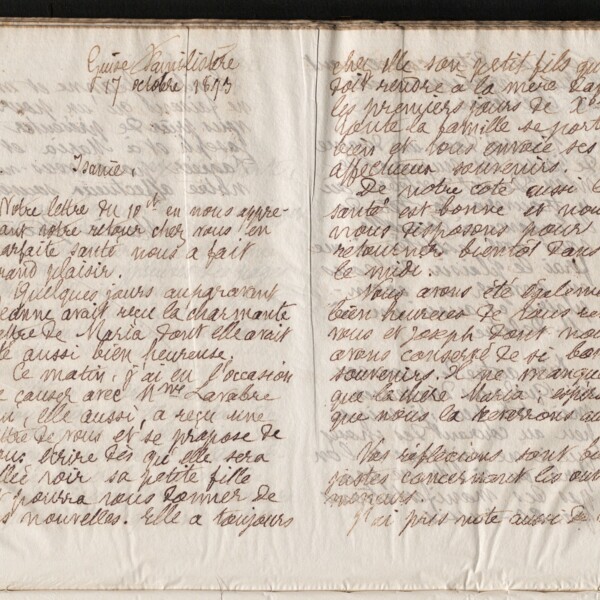 Guise Familistère
17 octobre 1893
Isanie,
Votre lettre du 10 ct en nous appre-
ant votre retour chez vous en
arfaite santé nous a fait
rand plaisir.
Quelques jours auparavant
eanne avait reçu la charmante
ettre de Maria dont elle avait
té aussi bien heureuse.
Ce matin, j'ai eu l'occasion
e causer avec Mme Lavabre
ui, elle aussi, a reçu une
ettre de vous et se propose de
ous écrire dès qu'elle sera
llée voir sa petite fille
pourra vous donner de
s nouvelles. Elle a toujours
chez elle son petit fils qu
doit rendre à la mère da
les premiers jours de X
Toute la famille se port
bien et vous envoie ses
affectueux souvenirs.
De notre coté aussi l
santé est bonne et nou
nous disposons pour
retourner bientôt dans
le midi.
Nous avons été égaleme
bien heureuses de vous
vous et Joseph dont nou
avons conservé de si bon
souvenirs. Il ne manqu
que la chère Maria; espér
que nous la reverrons au
Vos réflexions sont bi
justes concernant les ou
moneurs.
J'ai pris note aussi de